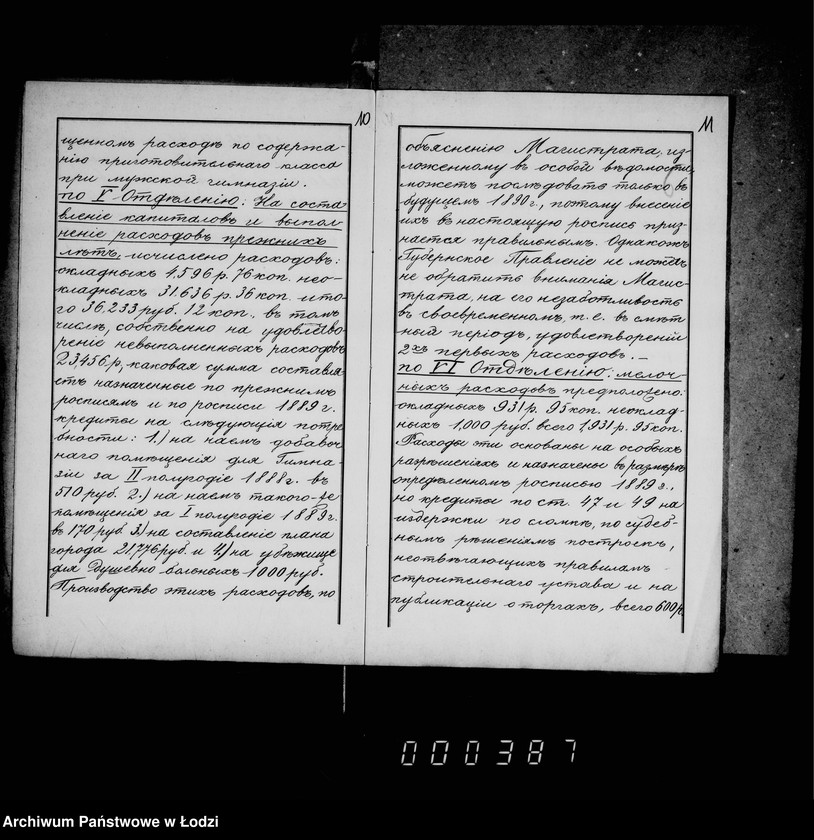 10
щенномъ расходѣ по содержа-
нію приготовительнаго класса
при мужской гимназіи.
по V Отдѣленію: На соста-
вленіе капиталовъ и выпол-
неніе расходовъ прежнихъ
лѣтъ: исчислено расходовъ:
окладныхъ 4,596 р. 76 коп. нео-
кладныхъ 31.636 р. 36 коп. ито-
го 36,233 руб. 12 коп. въ томъ
числѣ, собственно на удовлетво-
реніе невыполненныхъ расходовъ
23,456 р., каковая сумма составля-
етъ назначенные по прежнимъ
росписямъ и по росписи 1889 г.
кредиты на слѣдующія потре-
бности: 1.) на наемъ добавоч-
наго помѣщенія для Гимна-
зіи за II полугодіе 1888 г. въ
510 руб. 2.) на наемъ такого-же
помѣщенія за I полугодіе 1889 г.
въ 170 руб. 3.) на составленіе плана
города 21,776 руб. и 4.) на убѣжище
для душевно больныхъ 1000 руб.
Производство этихъ расходовъ, по
11
объясненію Магистрата, из-
ложенному въ особой вѣдомости,
можетъ послѣдовать только въ
будущемъ 1890 г., потому внесеніе
ихъ въ настоящую роспись приз-
нается правильнымъ. Однакожъ
Губернское Правленіе не можетъ
не обратить вниманія Магис-
трата, на его незаботливость
въ своевременномъ, т. е. въ смѣт-
ный періодъ, удовлетвореніи
2хъ первыхъ расходовъ. –
по VI Отдѣленію: мелоч-
ныхъ расходовъ предположено:
окладныхъ 931 р. 95 коп. неоклад-
ныхъ 1,000 руб. всего 1.931 р. 95 коп.
Расходы эти основаны на особыхъ
разрѣшеніяхъ и назначены въ размѣрѣ
опредѣленномъ росписью 1889 г.,
но кредиты по ст. 47 и 49 на
издержки по сломкѣ, по судеб-
нымъ рѣшеніямъ построекъ,
неотвѣчающихъ правиламъ
строительнаго устава и на
публикаціи о торгахъ, всего 600 р.
000387
Archiwum Państwowe w Łodzi